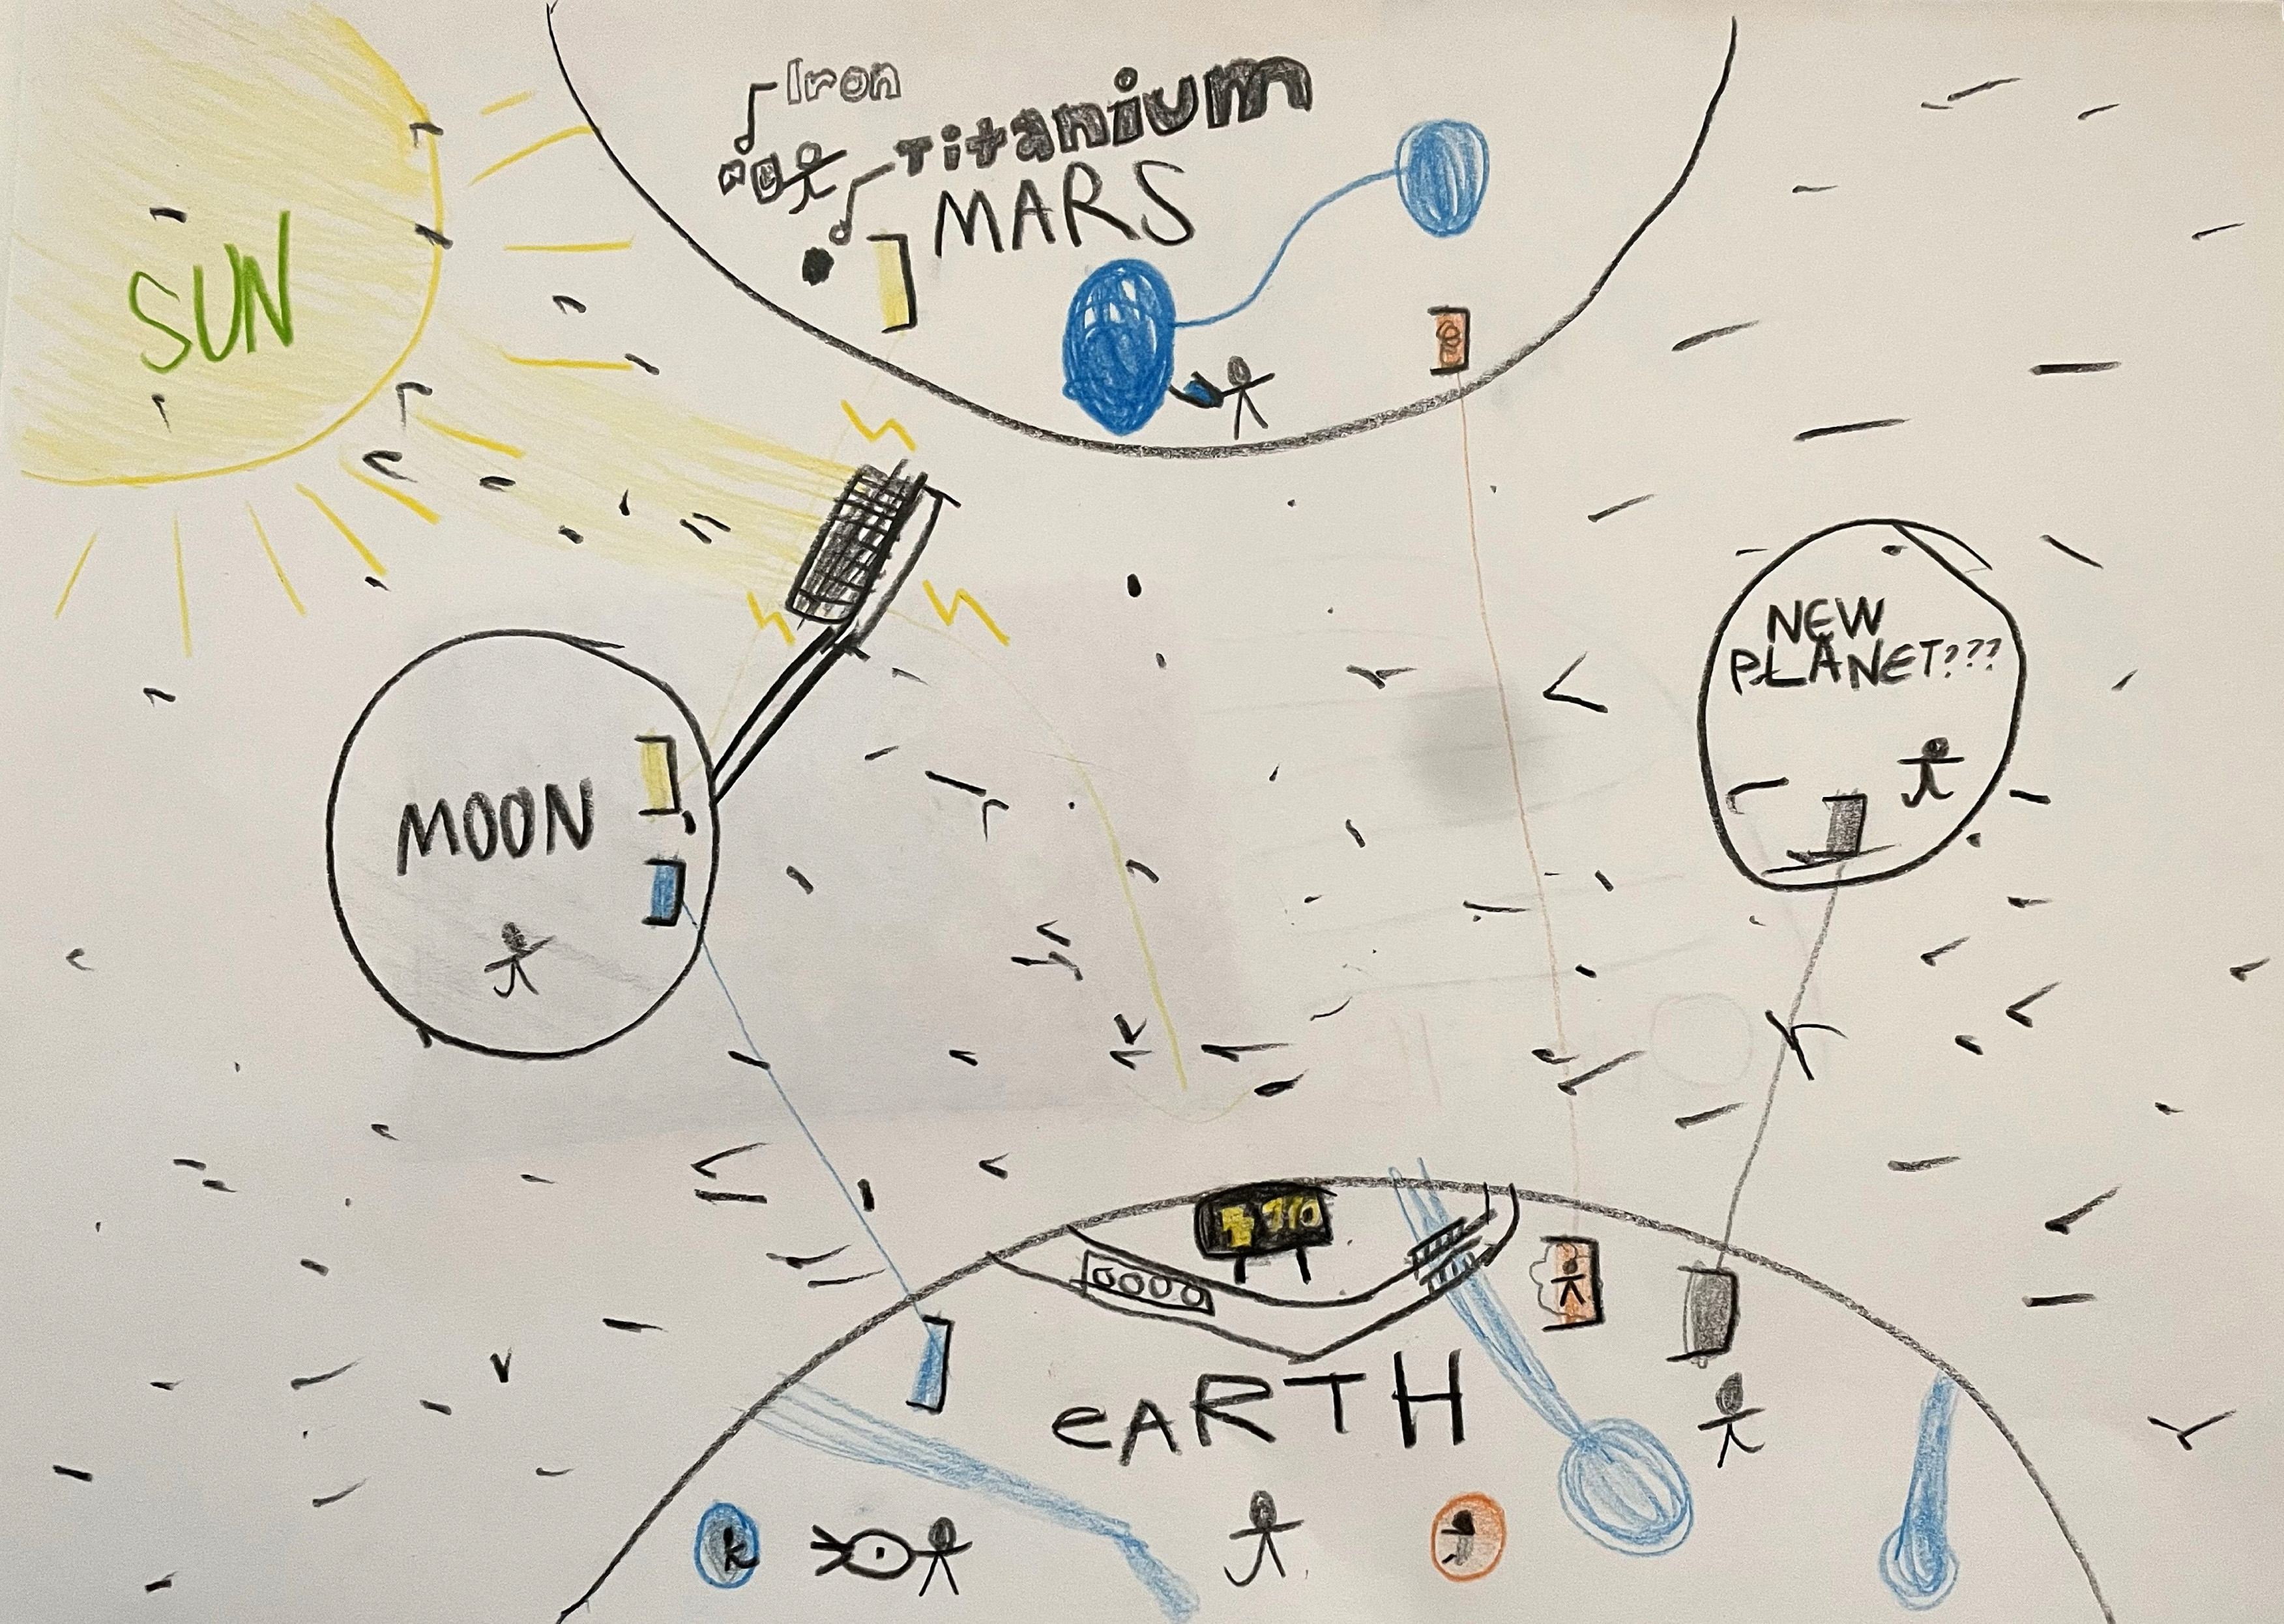 Iron
Titanium
MARS
SUN
NEW
PLANET???
MOON
eARTH